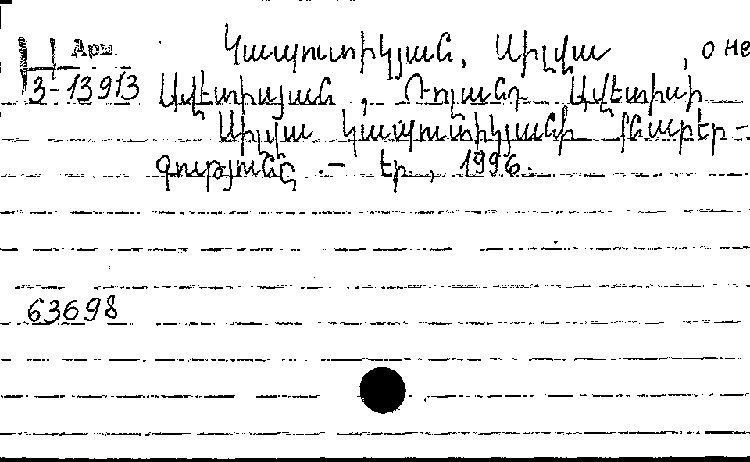 Арм. Կապուտիկյան, Սիլվա, о не
3-13913 Ավետիսյան, Ռոլանդ Ավետիսի
Սիլվա Կապուտիկյանի քնարեր-
գությունը .- Եր., 1996.
63698